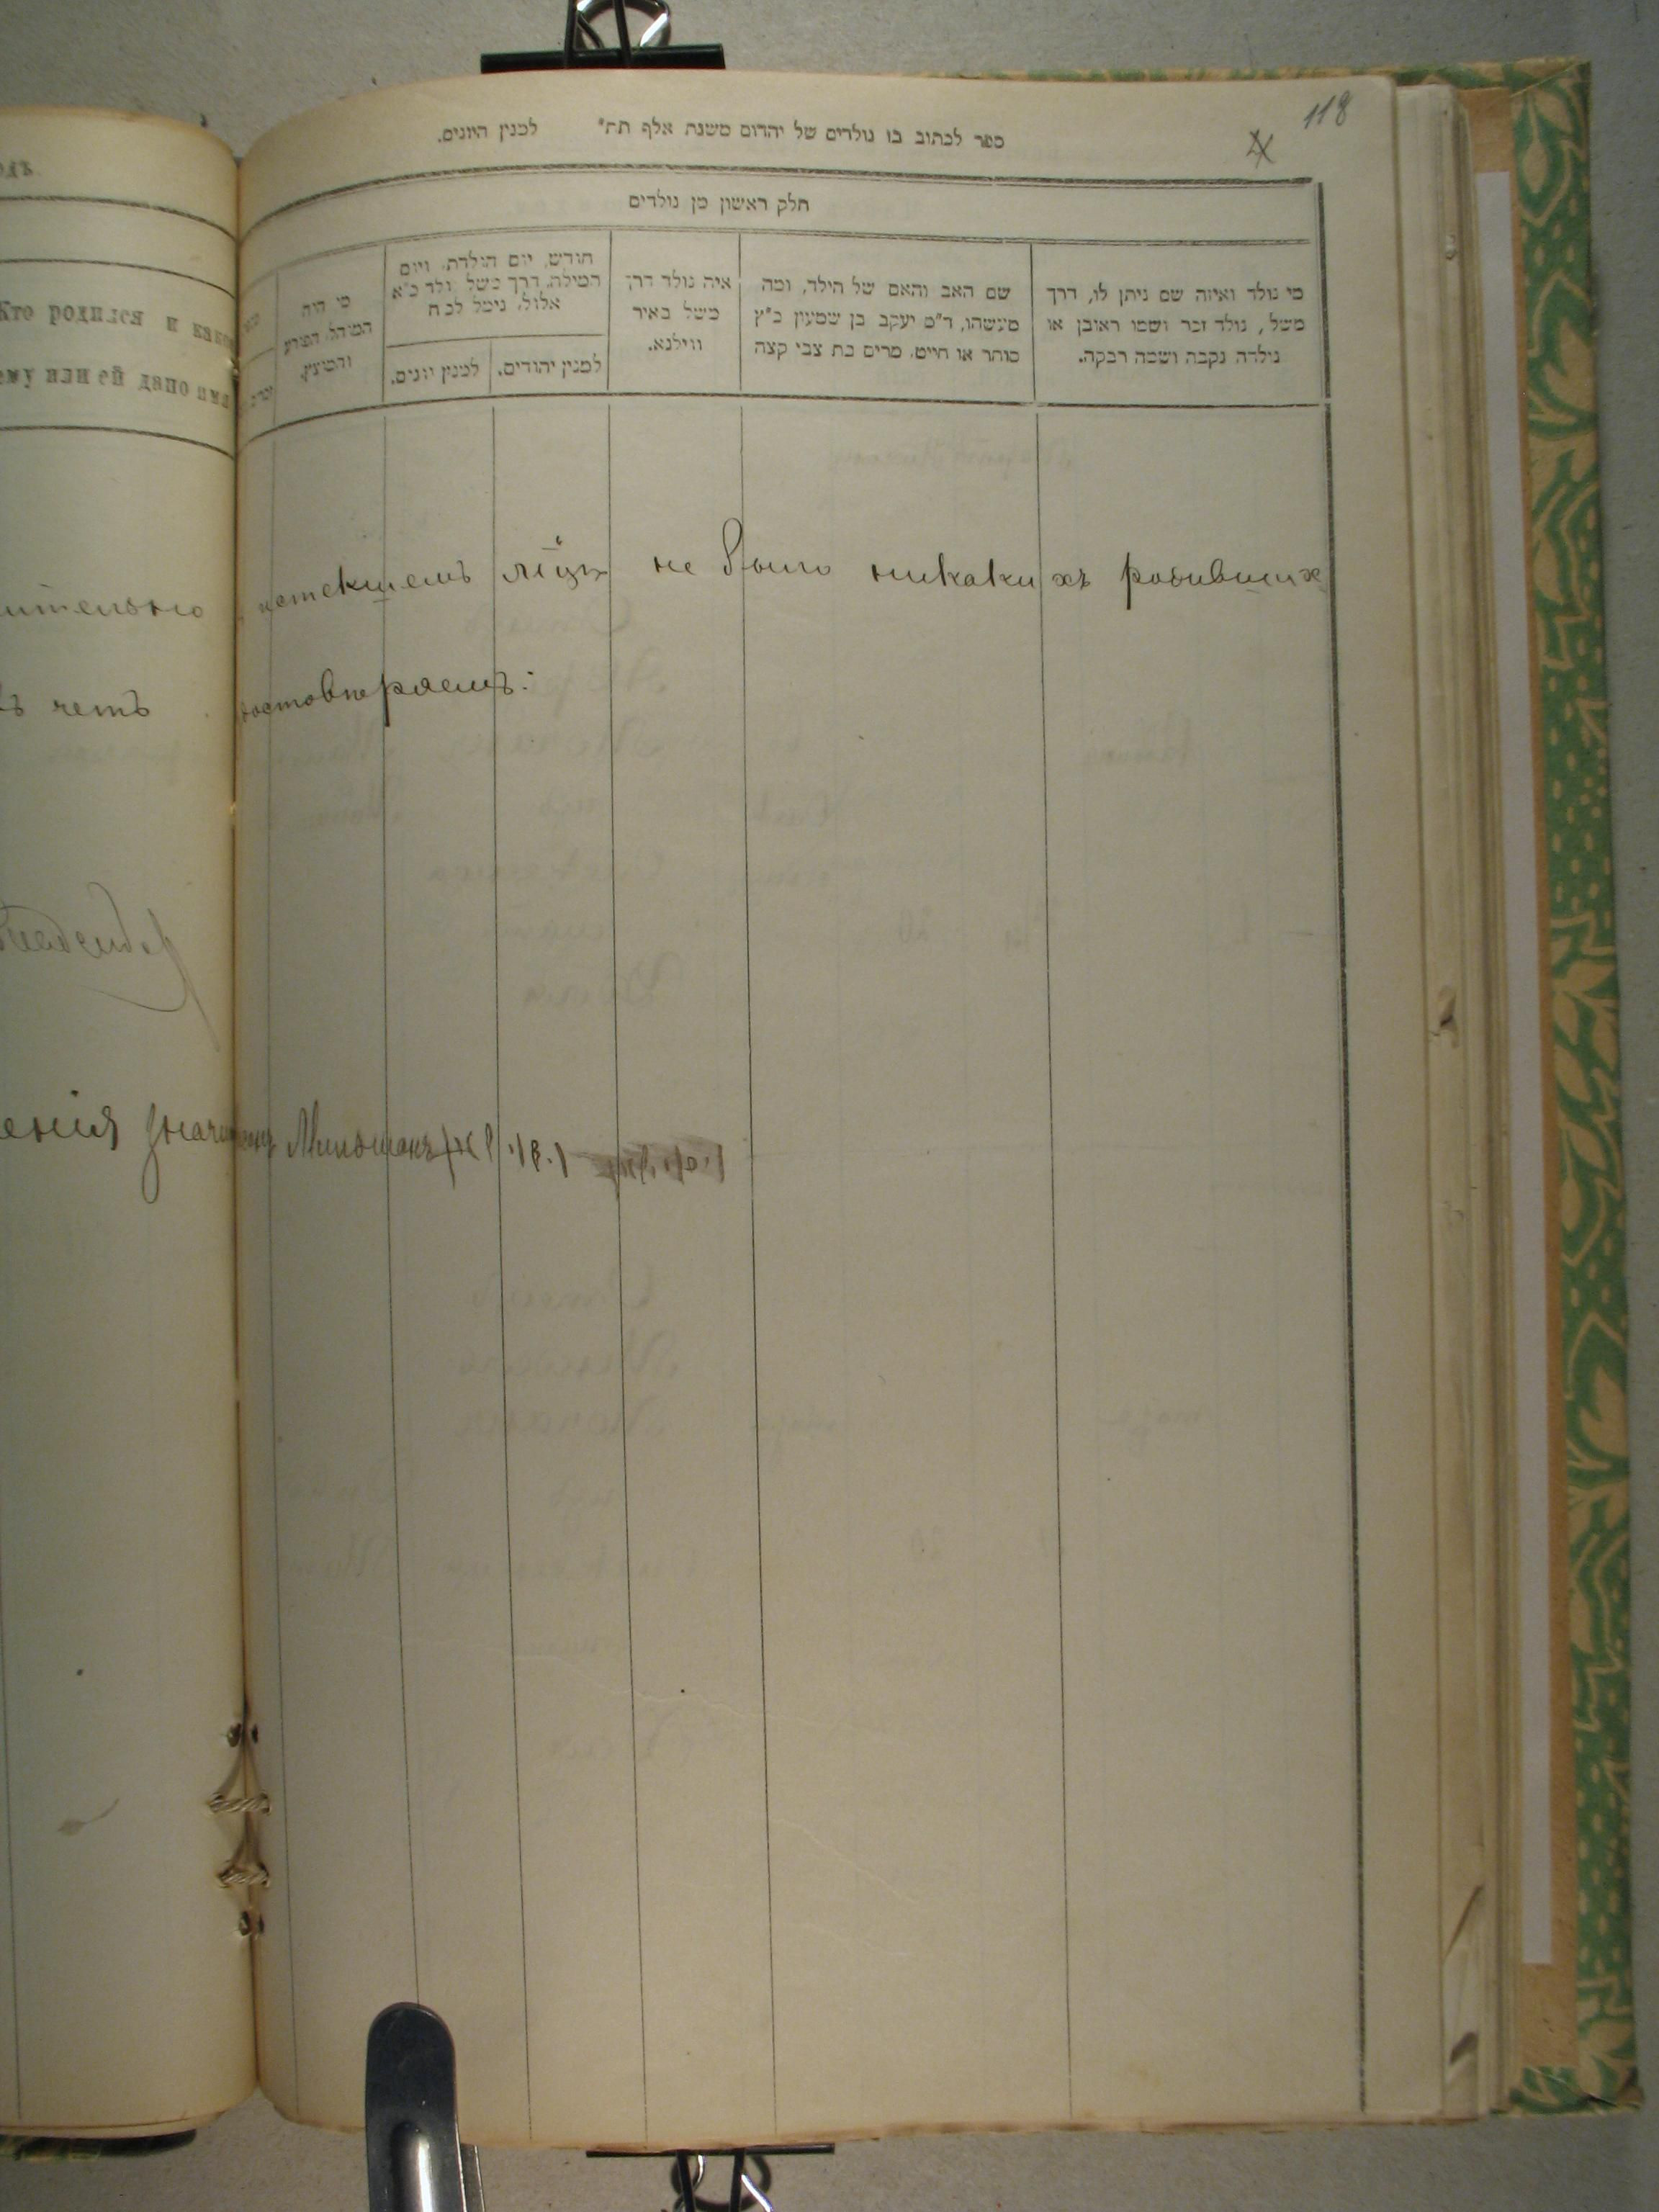 118
ספר לכתוב בו נולדים של יהדום משנת אלף תת״ למנין היונים.
חלק ראשון מן נולדים
מי נולד ואיזה שם ניתן לו, דרך
משל, נולד זכר ושמו ראובן או
נולדה נקבה ושמה רבקה.
שם האב והאם של הילד, ומה
מעשהו, ד״מ יעקב בן שמעון כ״ץ
סוחר או חייט, מרים בת צבי קצה
איה נולד דרך
משל באיר
ווילנא.
חודש, יום הולדת, ויום
המילה, דרך משל נולד כ״א
אלול, נימל לכ״ח
למנין יהודים.
למנין יונים.
מי היה
המוהל הפורע
והמוצץ.
Кто родился и како
ему или ей дано имя
ительно истекшемъ мцѣ не было никакихъ родивших
ъ чемъ достовѣряемъ:
ения Мильманъ